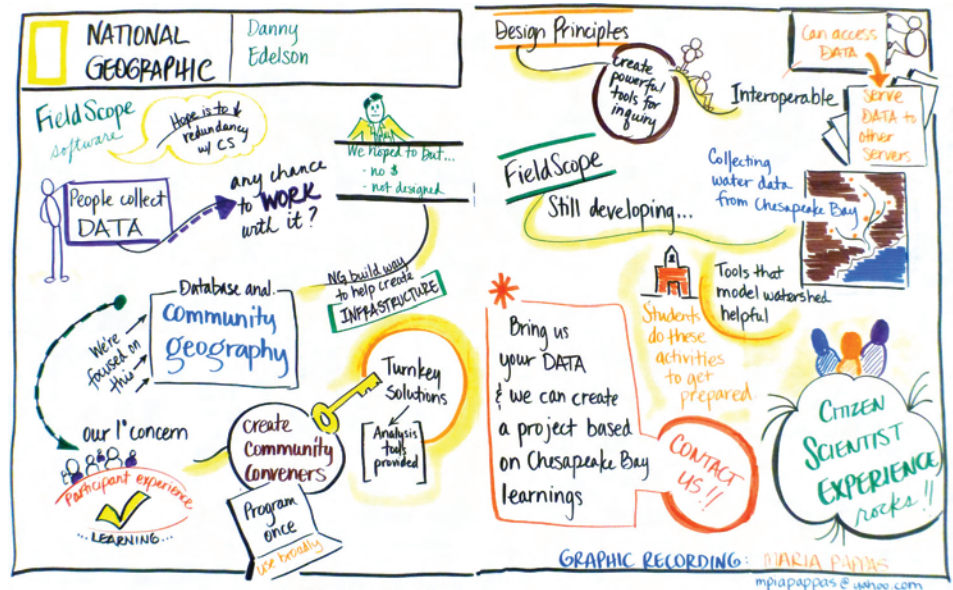 NATIONAL
GEOGRAPHIC
Danny
Edelson
FieldScope
software
Hope is to ↓
redundancy
w/ CS
We hoped to but...
- no $
- not designed
People collect
DATA
any chance
to WORK
with it?
NG build way
to help create
INFRASTRUCTURE
Database anal.
community
geography
We're
focused on
this
our 1° concern
Participant experience
... LEARNING ...
create
Community
Conveners
Turnkey
Solutions
Analysis
tools
provided
Program
once
use broadly
Design Principles
create
powerful
tools for
inquiry
Interoperable
Can access
DATA
Serve
DATA to
other
Servers
FieldScope
Still developing...
Collecting
water data
from Chesapeake Bay
Tools that
model watershed
helpful
Students
do these
activities
to get
prepared.
Bring us
your DATA
& we can create
a project based
on Chesapeake Bay
learnings
CONTACT
US!!
CITIZEN
SCIENTIST
EXPERIENCE
rocks!!
GRAPHIC RECORDING: MARIA PAPPAS
mpiapappas@yahoo.com